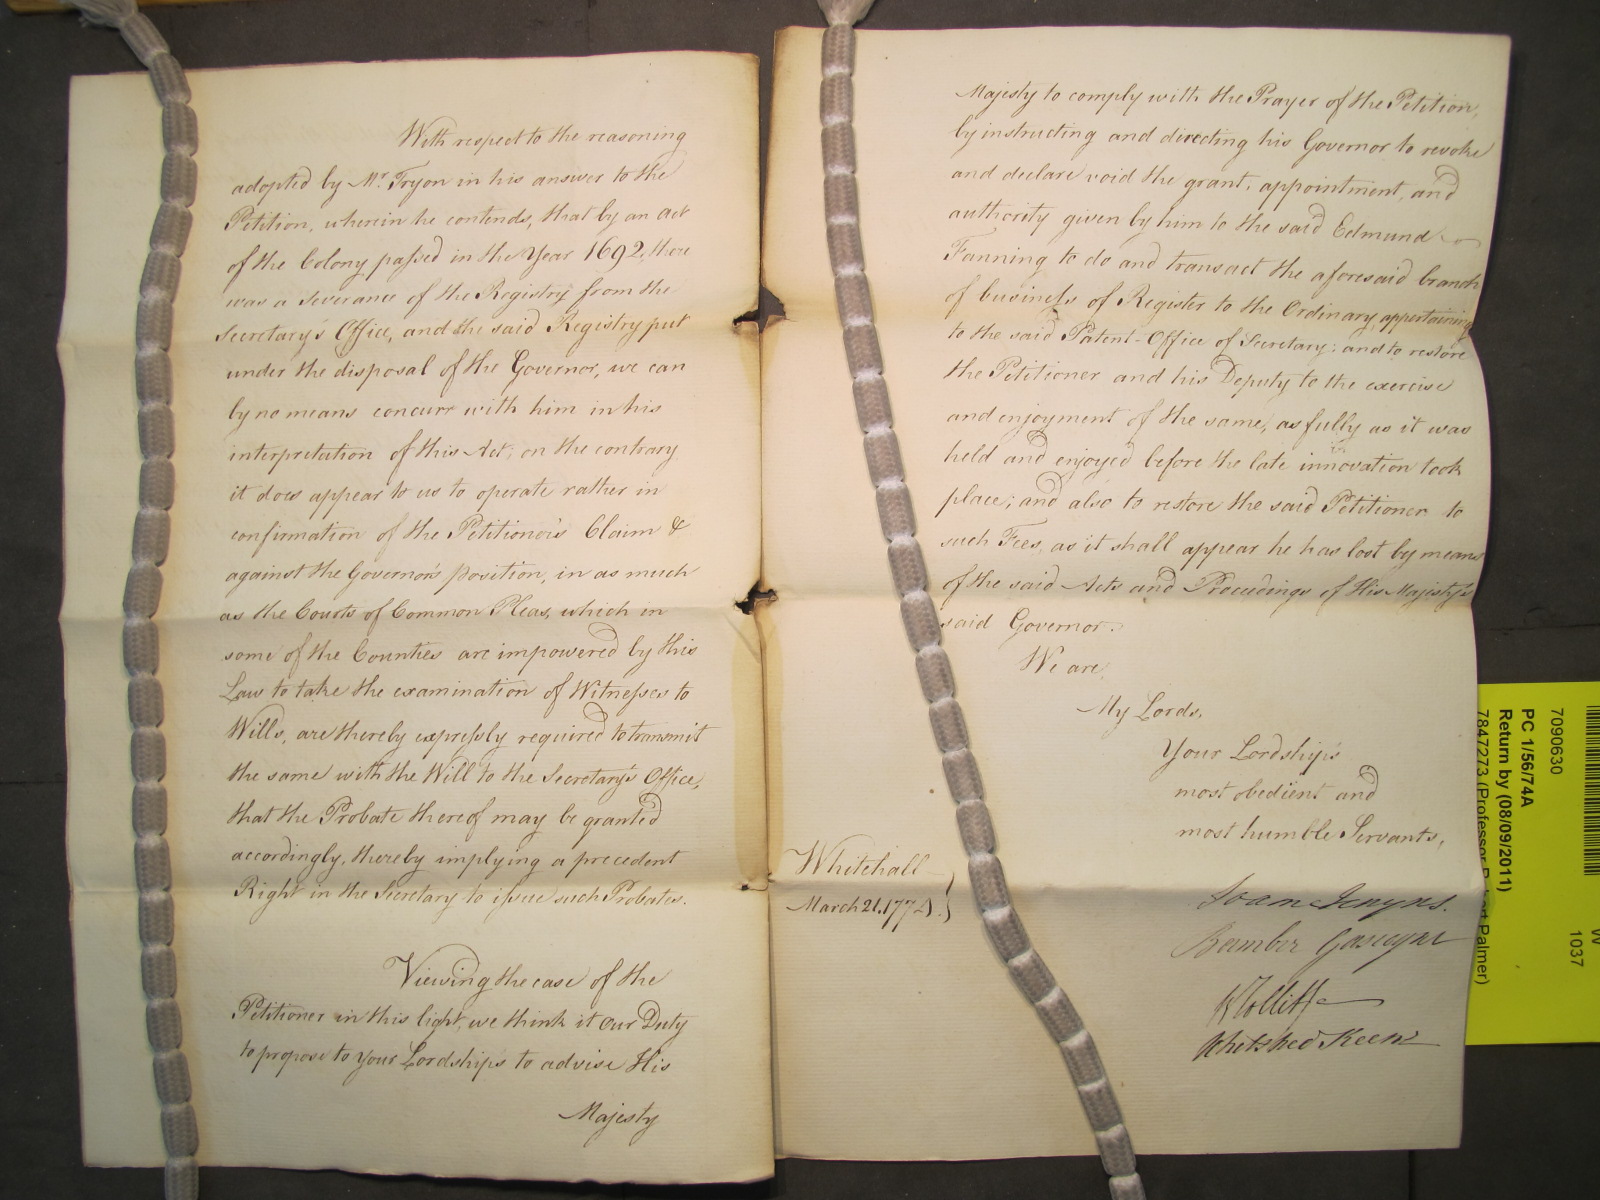 With respect to the reasoning
adopted by Mr. Tryon in his answer to the
Petition, wherein he contends, that by an Act
of the Colony passed in the Year 1692, there
was a Severance of the Registry from the
Secretary's Office, and the said Registry put
under the disposal of the Governor, we can
by no means concurr with him in his
interpretation of this Act; on the contrary
it does appear to us to operate rather in
confirmation of the Petitioner's Claim &
against the Governor's position, in as much
as the Courts of Common Pleas, which in
some of the Counties are impowered by this
Law to take the examination of Witnesses to
Wills, are thereby expressly required to transmit
the same with the Will to the Secretary's Office,
that the Probate thereof may be granted
accordingly, thereby implying a precedent
Right in the Secretary to issue such Probates.
Viewing the case of the
Petitioner in this light, we think it our Duty
to propose to your Lordships to advise His
Majesty
Majesty to comply with the Prayer of the Petition,
by instructing and directing his Governor to revoke
and declare void the grant, appointment, and
authority given by him to the said Edmund
Fanning to do and transact the aforesaid branch
of business of Register to the Ordinary, appertaining
to the said Patent-Office of Secretary; and to restore
the Petitioner and his Deputy to the exercise
and enjoyment of the same, as fully as it was
held and enjoyed before the late innovation took
place; and also to restore the said Petitioner to
such Fees, as it shall appear he has lost by means
of the said Acts and Proceedings of His Majesty's
said Governor.
We are,
My Lords,
Your Lordships
most obedient and
most humble Servants,
Whitehall
March 21. 1774.
Soame Jenyns.
Bamber Gascoyne
W Jolliffe
Whitshed Keene
7090630
PC 1/56/74A
Return by (08/09/2011)
7847273 (Professor Palmer)
W
1037